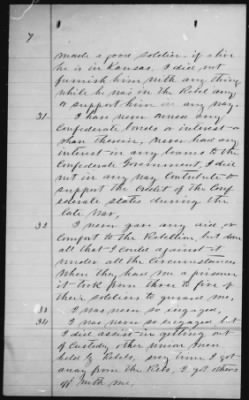 7
made a good soldier. if alive
he is in Kansas, I did not
furnish him with any thing
while he was in the Rebel army
or support him in any way.
31. I have never owned any
Confederate bonds or interest
than therein, never had any
interest in any loans to the
Confederate Government, I did
not in any way contribute to
support the credit of the Conf
ederate States during the
late War,
32 I never gave any aid or
comfort to the Rebellion, but done
all that I could against it
under all the circumstances
When they had me a prisoner
it took from three to five of
their soldiers to guard me,
33 I was never so engaged,
34 I was never so engaged but
I did assist in getting out
of Custody other union men
held by Rebels, any time I got
away from the Rebs, I got others
off with me,